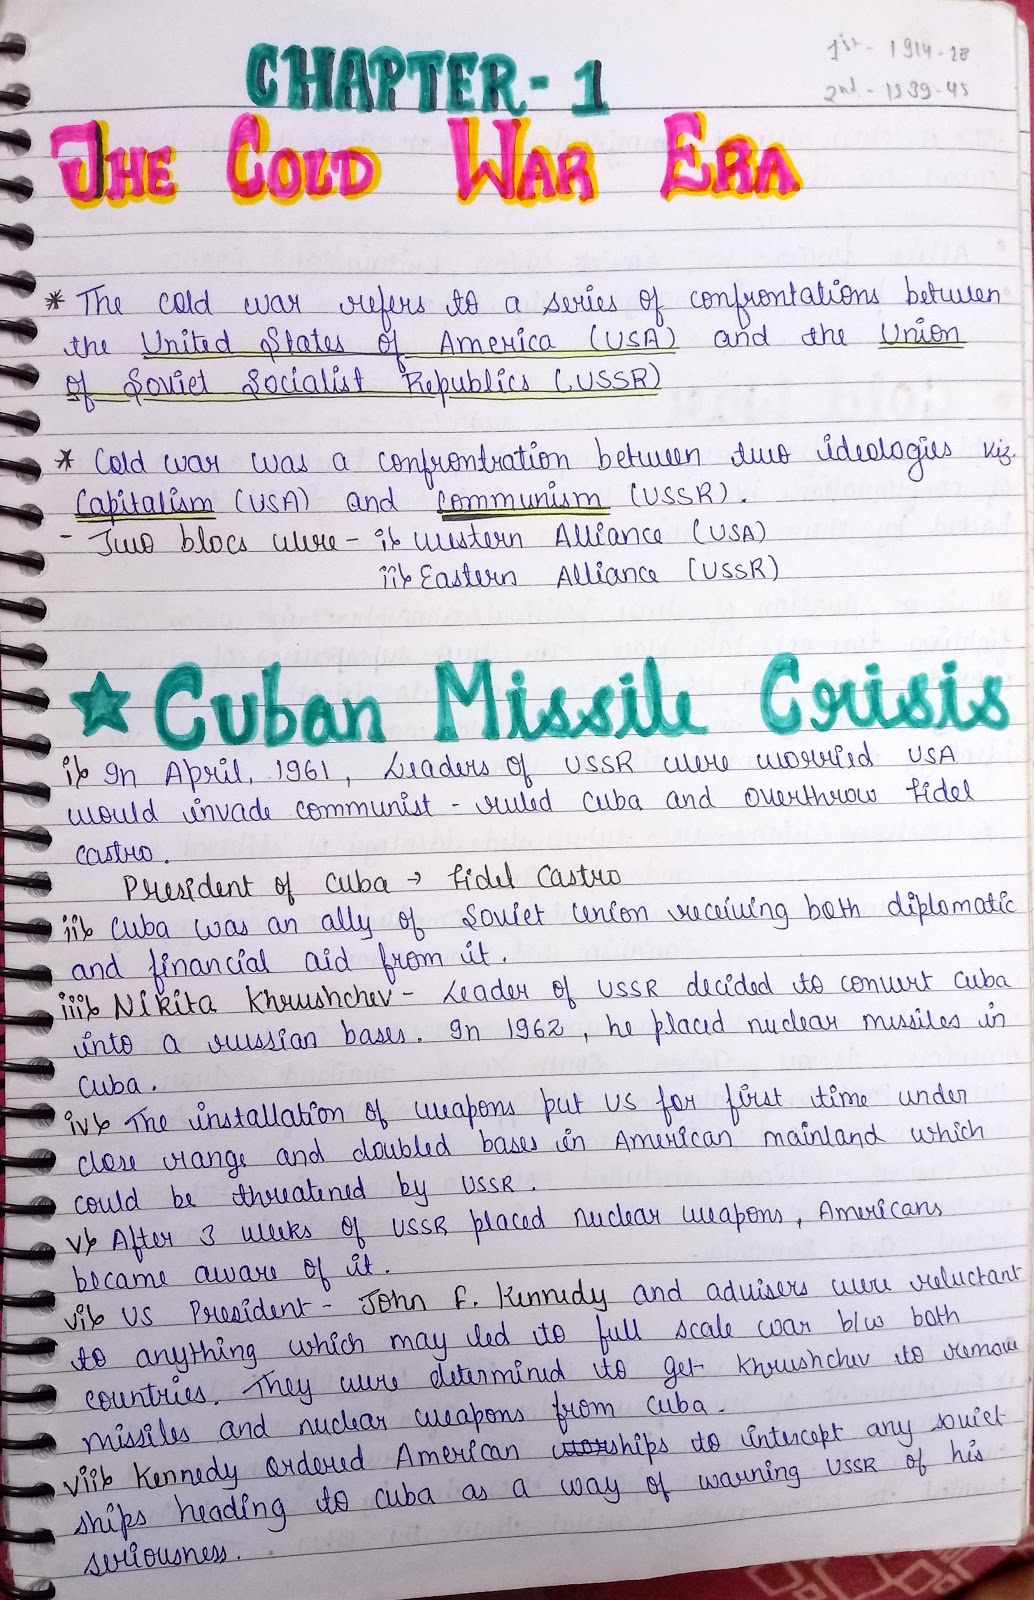 CHAPTER - 1
1st - 1914-28
2nd - 1939-45
THE COLD WAR ERA
* The cold war refers to a series of confrontations between
the United States of America (USA) and the Union
of Soviet Socialist Republics (USSR)
* Cold war was a confrontration between two ideologies viz.
Capitalism (USA) and Communism (USSR).
- Two blocs were - i) western Alliance (USA)
ii) Eastern Alliance (USSR)
★ Cuban Missile Crisis
i) In April, 1961, Leaders of USSR were worried USA
would invade communist - ruled Cuba and overthrow Fidel
Castro.
President of Cuba → Fidel Castro
ii) Cuba was an ally of Soviet Union receiving both diplomatic
and financial aid from it.
iii) Nikita Khrushchev - Leader of USSR decided to convert Cuba
into a russian bases. In 1962, he placed nuclear missiles in
Cuba.
iv) The installation of weapons put US for first time under
close range and doubled bases in American mainland which
could be threatened by USSR.
v) After 3 weeks of USSR placed nuclear weapons, Americans
became aware of it.
vi) US President - John F. Kennedy and advisers were reluctant
to anything which may led to full scale war b/w both
countries. They were determined to get Khrushchev to remove
missiles and nuclear weapons from Cuba.
vii) Kennedy ordered American warships to intercept any soviet
ships heading to Cuba as a way of warning USSR of his
seriousness.